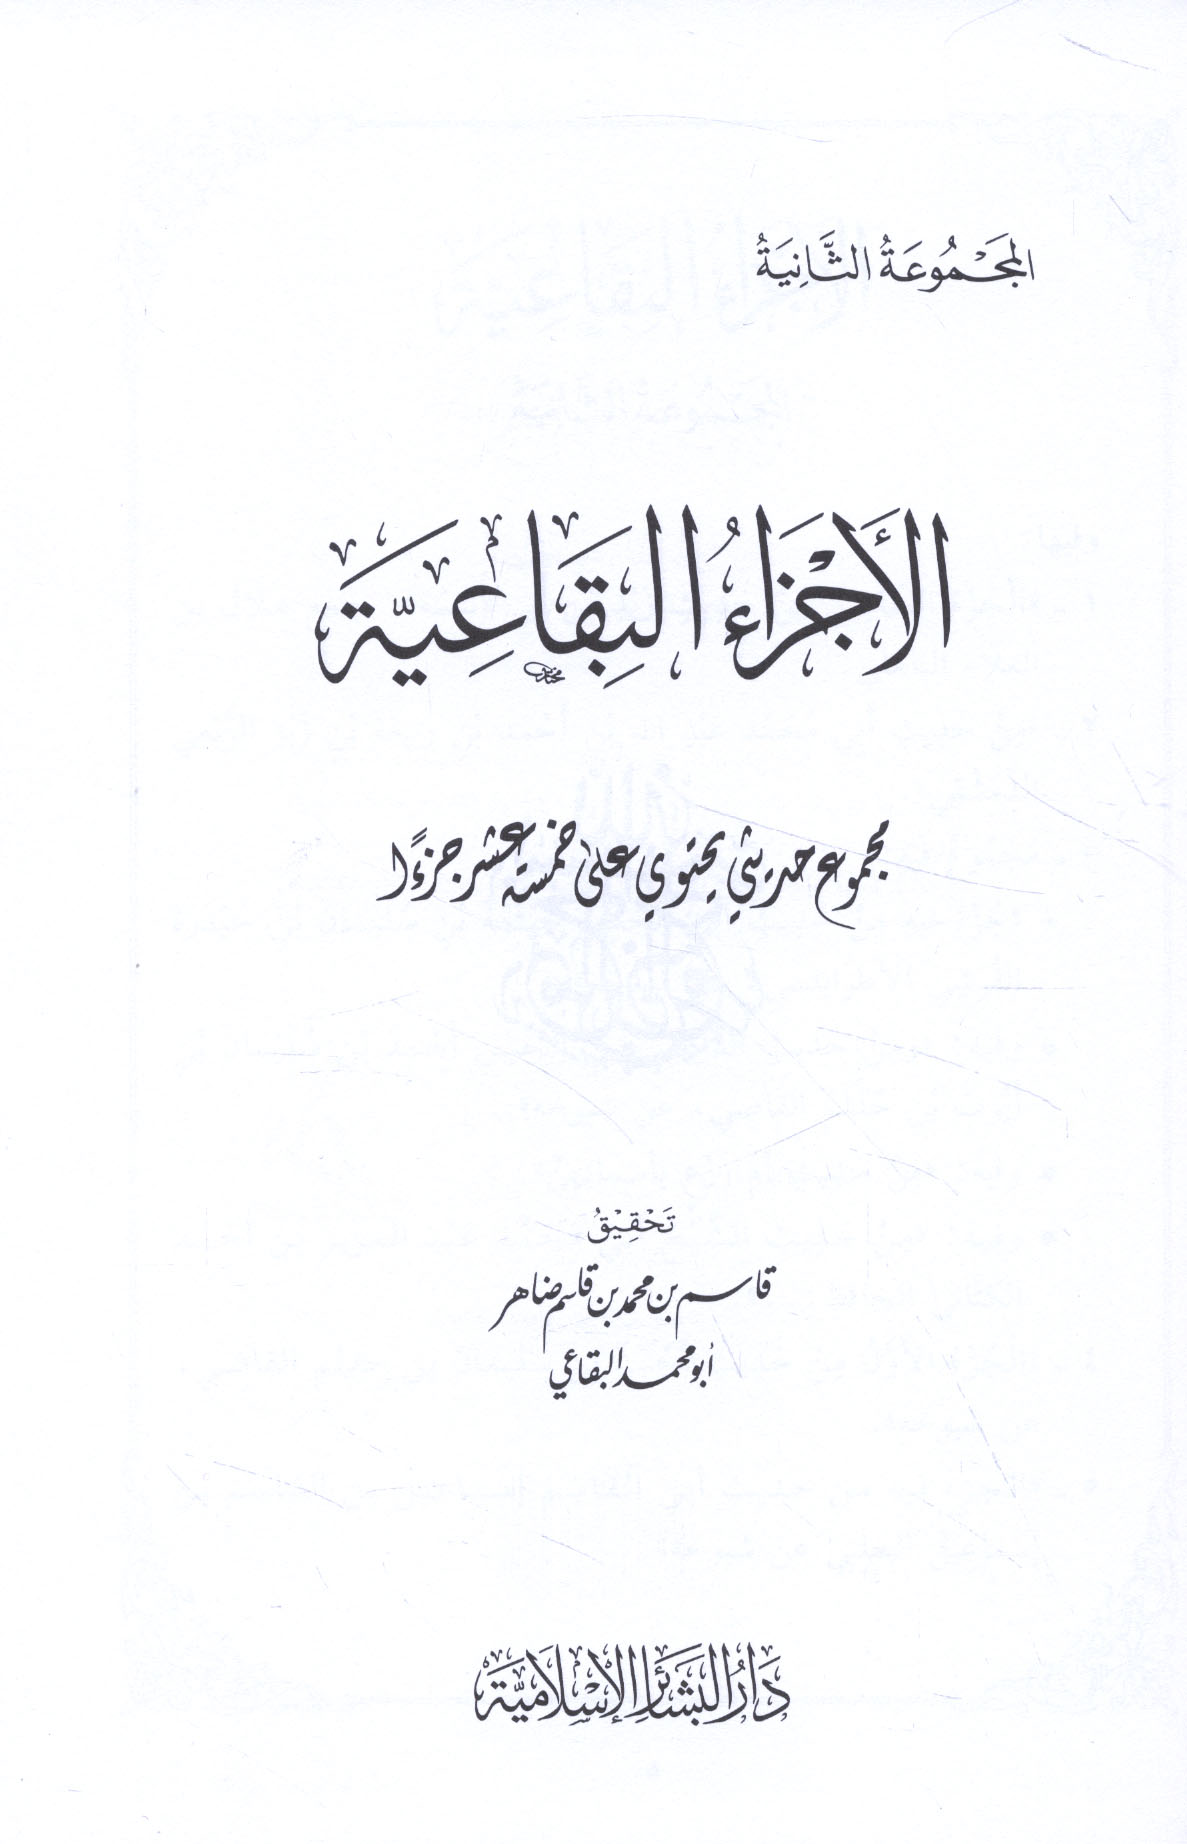 المَجْمُوعَةُ الثَّانِيَةُ
الأَجْزَاءُ البِقَاعِيَّة
مجموع حديثي يحتوي على خمسة عشر جزءًا
تَحْقِيْقُ
قاسم بن محمد بن قاسم ضاهر
أبو محمد البقاعي
دَارُ البَشَائِرِ الإِسْلَامِيَّة